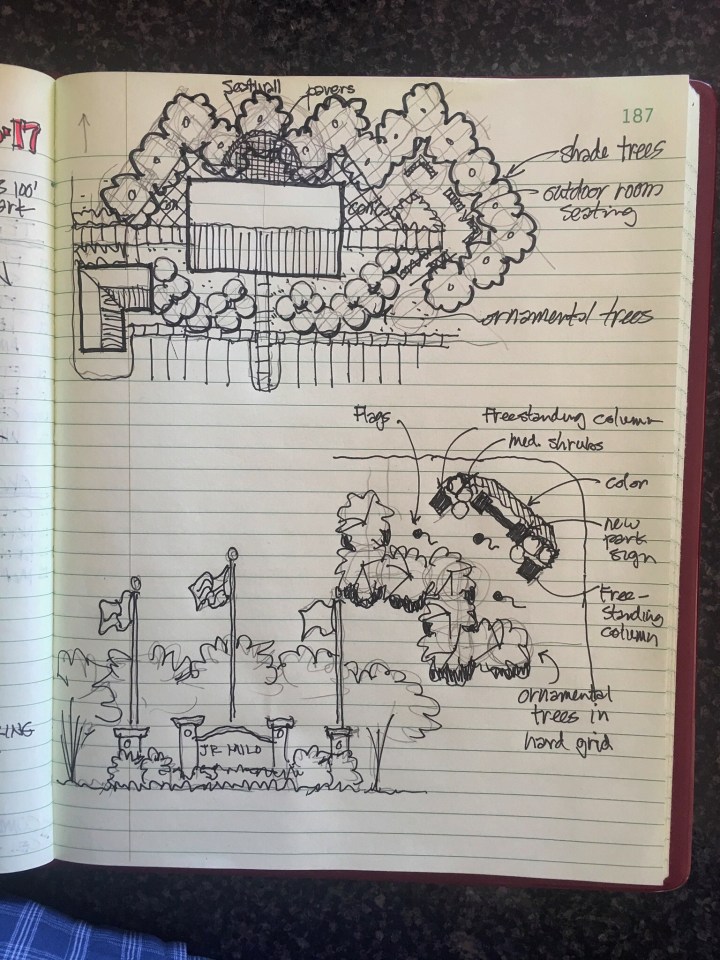 17
187
s 100'
seatwall
pavers
shade trees
outdoor room
seating
conc.
ornamental trees
Flags
Freestanding column
med. shrubs
color
new
park
sign
Free-
standing
column
ornamental
trees in
hard grid
JR MILO